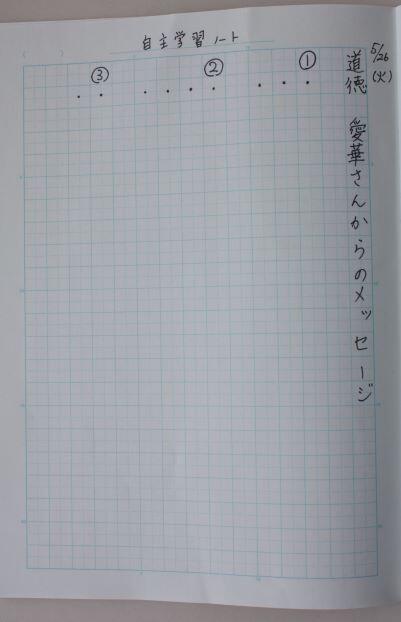 自主学習ノート
5/26(火)
道徳 愛華さんからのメッセージ
①
・・・
②
・・・・
③
・・